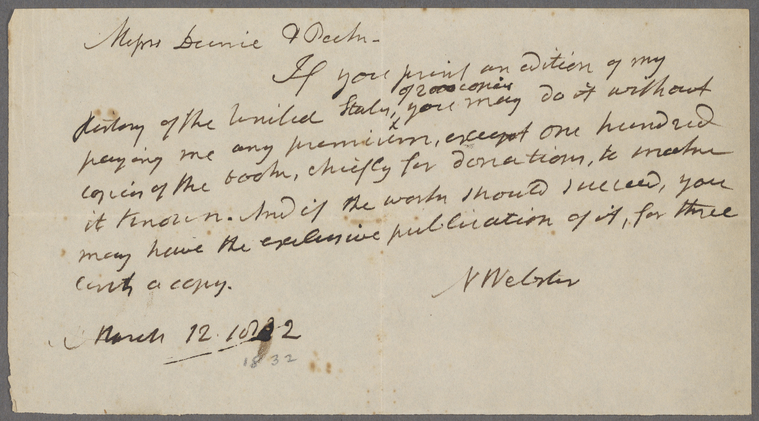 Messrs Durrie & Peck -
If you print an edition of my
of 2000 copies
history of the United States, you may do it without
paying me any premium, except one hundred
copies of the book, chiefly for donations, to make
it known. And if the work should succeed, you
may have the exclusive publication of it, for three
cents a copy.
N Webster
March 12. 1832
1832